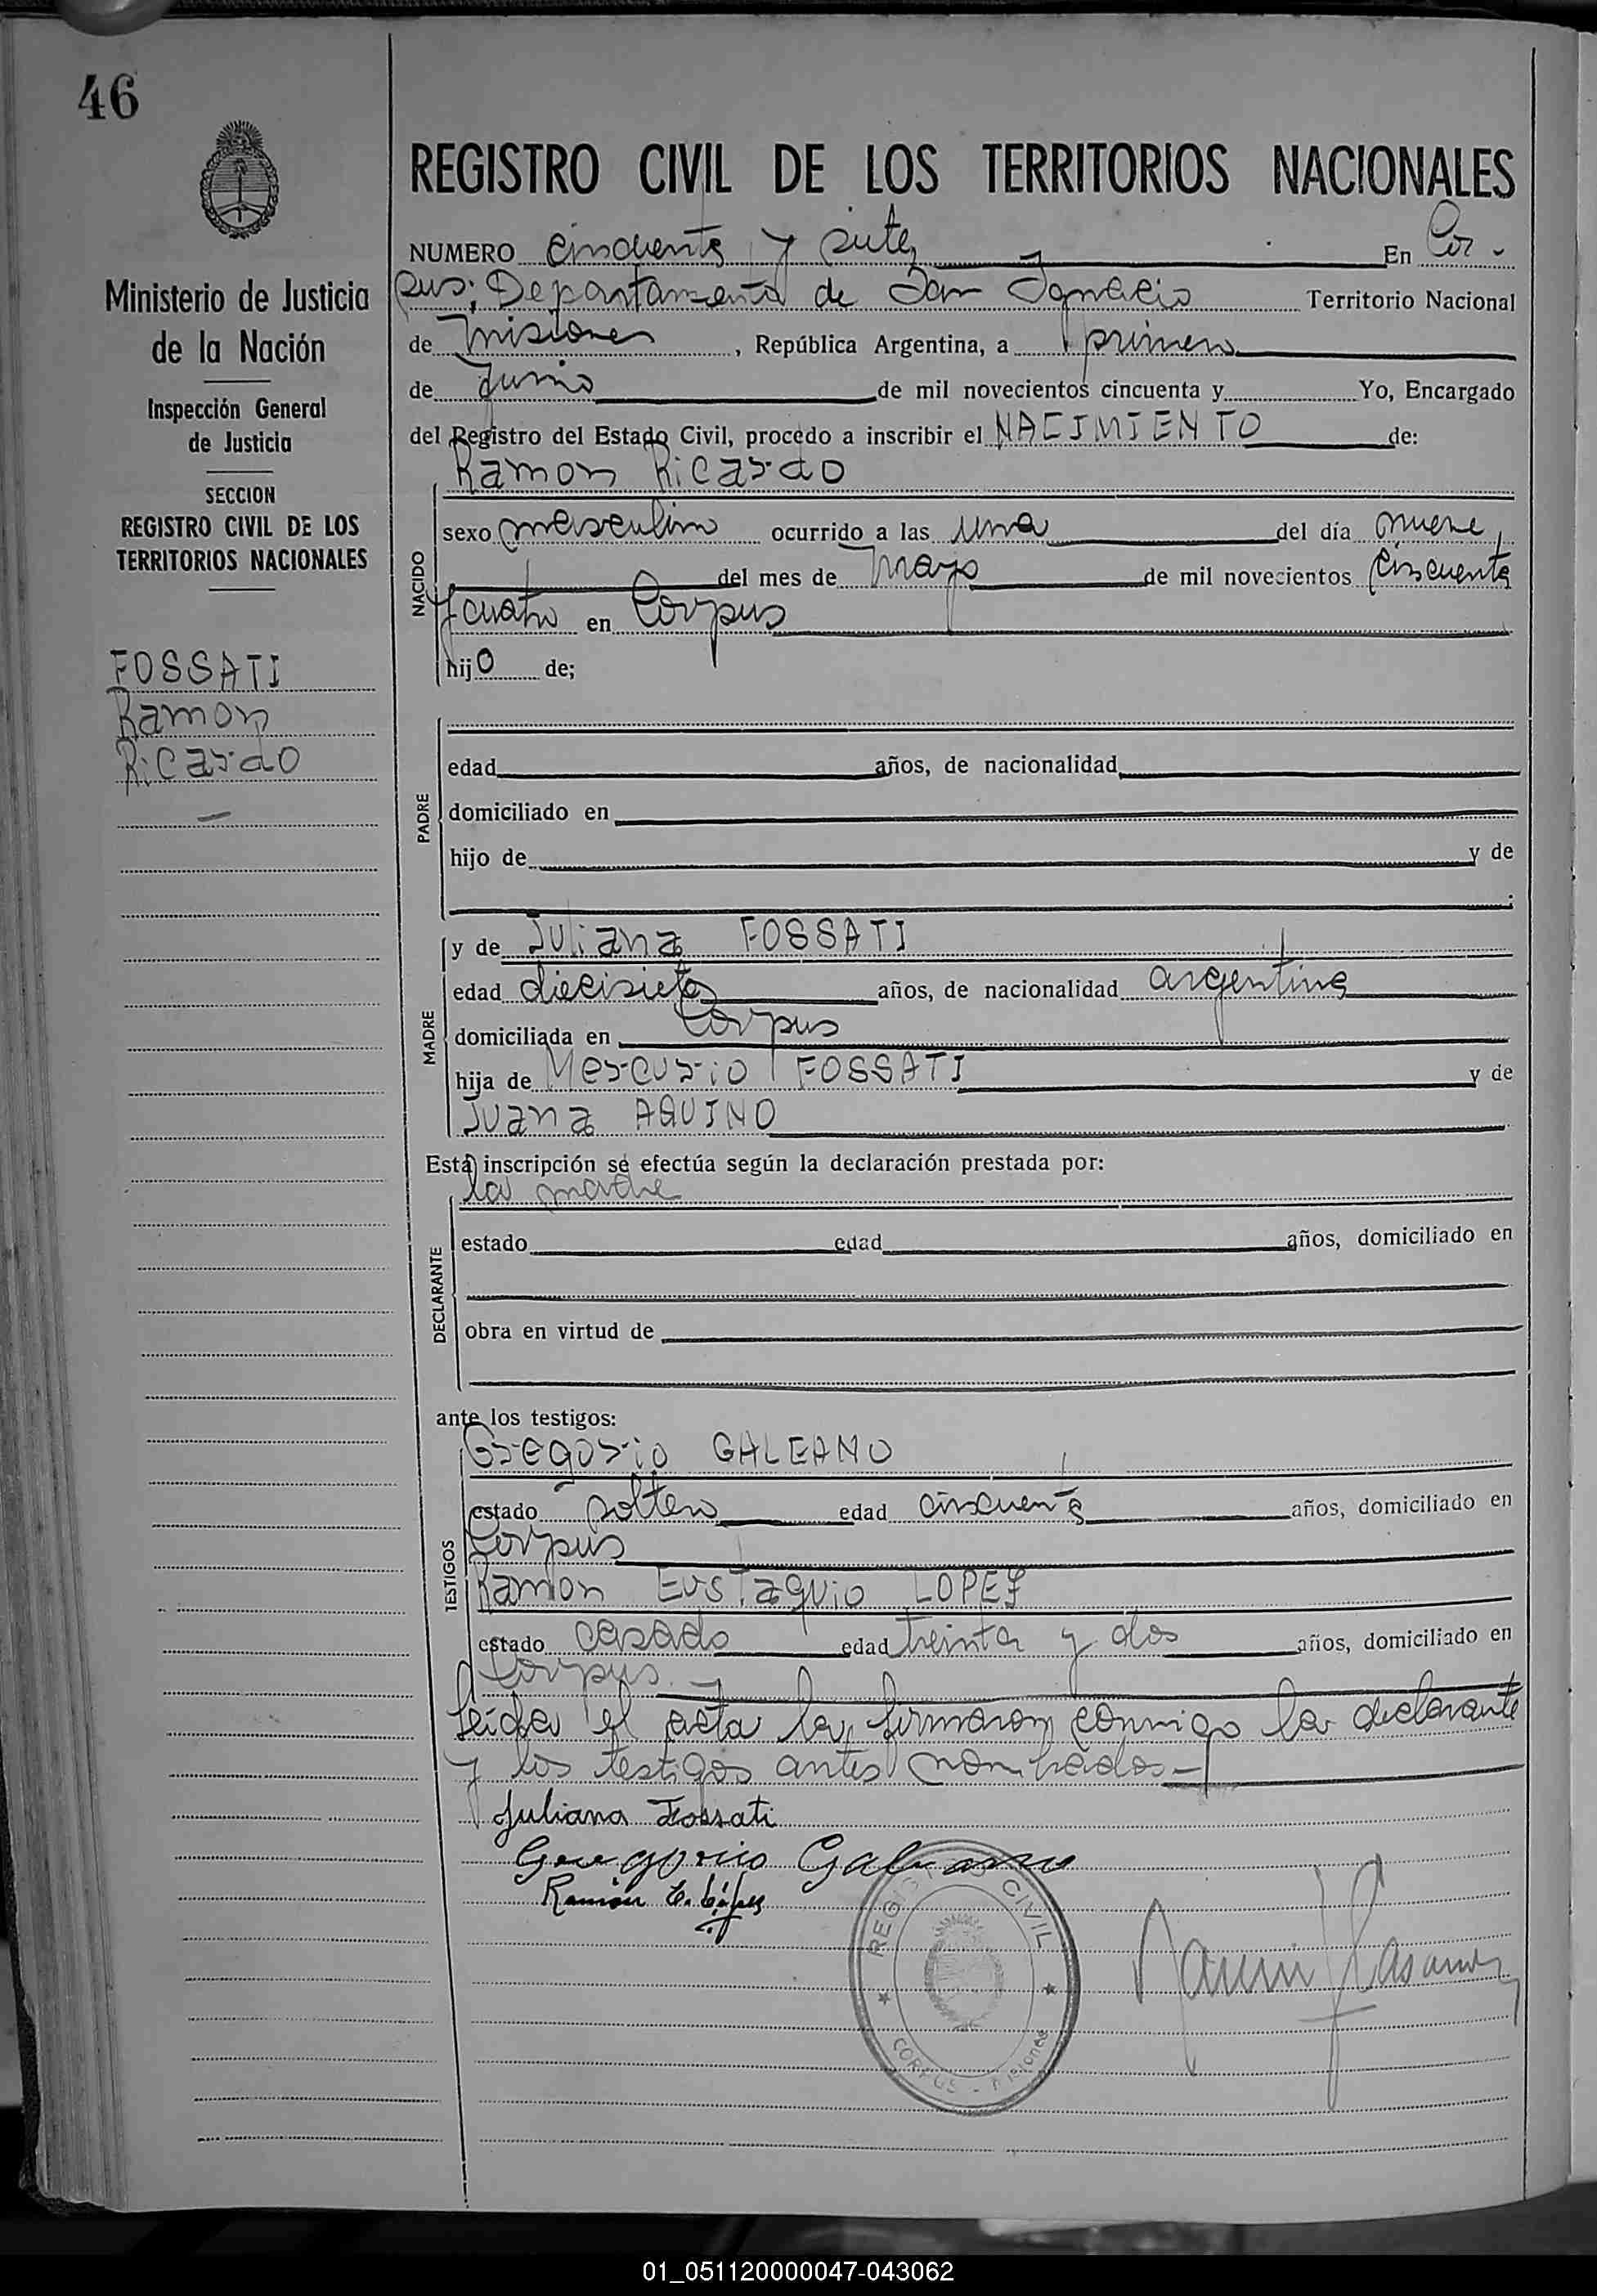 46
REGISTRO CIVIL DE LOS TERRITORIOS NACIONALES
Ministerio de Justicia
de la Nación
Inspección General
de Justicia
SECCION
REGISTRO CIVIL DE LOS
TERRITORIOS NACIONALES
FOSSATI
Ramon
Ricardo
NUMERO cincuenta y siete En Cor-
pus; Departamento de San Ignacio Territorio Nacional
de Misiones, República Argentina, a primero
de Junio de mil novecientos cincuenta y Yo, Encargado
del Registro del Estado Civil, procedo a inscribir el NACIMIENTO de:
Ramon Ricardo
NACIDO
sexo masculino ocurrido a las una del día nueve
del mes de mayo de mil novecientos cincuenta
y cuatro en Corpus
hijo de;
PADRE
edad años, de nacionalidad
domiciliado en
hijo de y de
MADRE
y de Juliana FOSSATI
edad diecisiete años, de nacionalidad argentina
domiciliada en Corpus
hija de Mercurio FOSSATI y de
Juana AQUINO
Esta inscripción se efectúa según la declaración prestada por:
la madre
DECLARANTE
estado edad años, domiciliado en
obra en virtud de
ante los testigos:
TESTIGOS
Gregorio GALEANO
estado soltero edad cincuenta años, domiciliado en
Corpus
Ramon Eustaquio LOPEZ
estado casado edad treinta y dos años, domiciliado en
Corpus.
Leida el acta la firmaron conmigo la declarante
y los testigos antes nombrados-
Juliana Fossati
Gregorio Galeano
Ramón E. López
REGISTRO CIVIL
CORPUS - Misiones
01_051120000047-043062